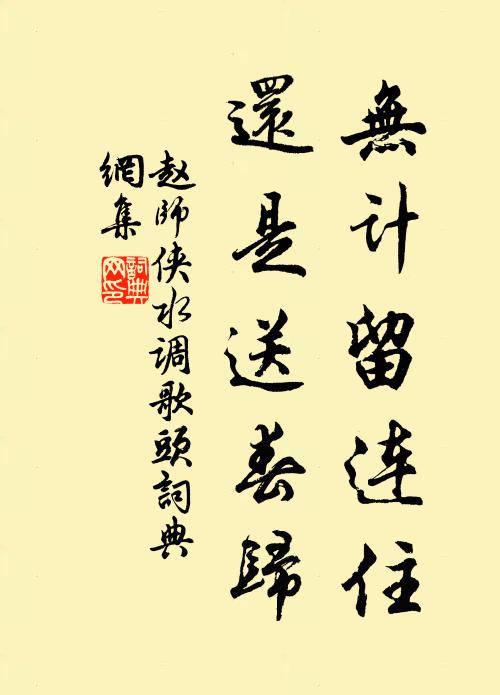 無计留连住
還是送春歸
赵師侠水调歌頭詞典
網集
詞典
网印